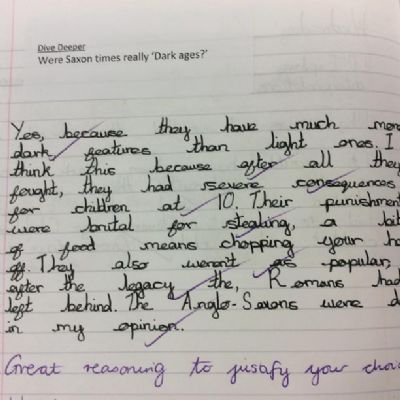 Dive Deeper
Were Saxon times really 'Dark ages?'
Yes, because they have much more
dark features than light ones. I
think this because after all they
fought, they had severe consequences
for children at 10. Their punishment
were brutal for stealing, a bit
of food means chopping your ha
off. They also weren't as popular,
after the legacy the, Romans had
left behind. The Anglo-Saxons were d
in my opinion.
Great reasoning to jusafy your choi